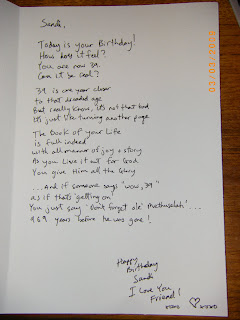 Sandi,
Today is your Birthday!
How does it feel?
You are now 39.
Can it be real?
39 is one year closer
to that dreaded age
But really know, it's not that bad
It's just like turning another page
The Book of your Life
is full indeed
with all manner of joy & story
As you Live it out for God
You give Him all the Glory
...And if someone says "wow, 39"
as if that's getting on
You just say "Don't forget ole' Methuselah"...
969 years before he was gone!
Happy
Birthday
Sandi
I Love You,
Friend!